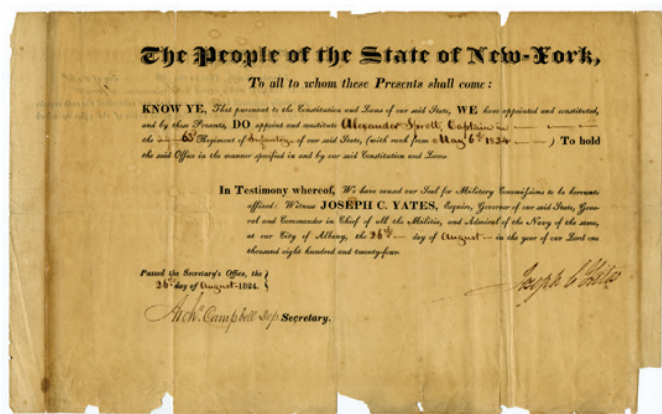 The People of the State of New-York,
To all to whom these Presents shall come:
KNOW YE, That pursuant to the Constitution and Laws of our said State, WE have appointed and constituted,
and by these Presents, DO appoint and constitute Alexander Captain in
the 63d Regiment of Infantry of our said State, (with rank from May 6th 1824 ) To hold
the said Office in the manner specified in and by our said Constitution and Laws.
In Testimony whereof, We have caused our Seal for Military Commissions to be hereunto
affixed: Witness JOSEPH C. YATES, Esquire, Governor of our said State, Gene-
ral and Commander in Chief of all the Militia, and Admiral of the Navy of the same,
at our City of Albany, the 26th day of August in the year of our Lord one
thousand eight hundred and twenty-four.
Passed the Secretary's Office, the
26th day of August 1824.
Joseph C Yates
Archd. Campbell Dep. Secretary.